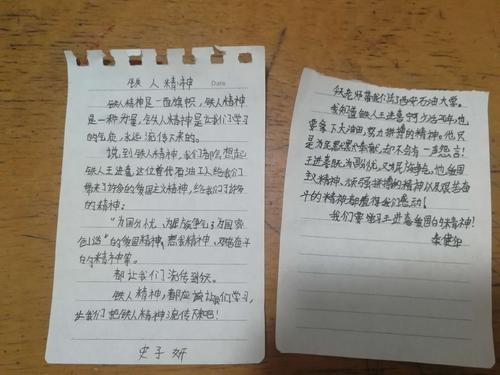 铁人精神
Date
铁人精神是一面旗帜，铁人精神
是一种力量，铁人精神是让我们学习
的气质，永远流传下来的。
说到铁人精神，我们都会想起
铁人王进喜，这位普代石油工人给我们
带来了许多的爱国主义精神，给我们了许多
的精神：
"为国分忧、为民族争气、为国家
创造"的爱国精神；忠我精神、艰苦奋斗
的精神等。
都让我们流传到今天。
铁人精神，都应当让我们学习，
让我们把铁人精神流传下来吧！
史子妍
老师带我们去了西安石油大学。
我知道铁人王进喜宁少活20年，也
要拿下大油田，努力拼搏的精神。他只
是为祖国默默奉献，却不会有一声怨言！
王进喜既为国分忧，又为民族争气。他爱国
主义精神、顽强拼搏的精神以及艰苦奋
斗的精神都值得我们感动！
我们要学习王进喜爱国的精神！